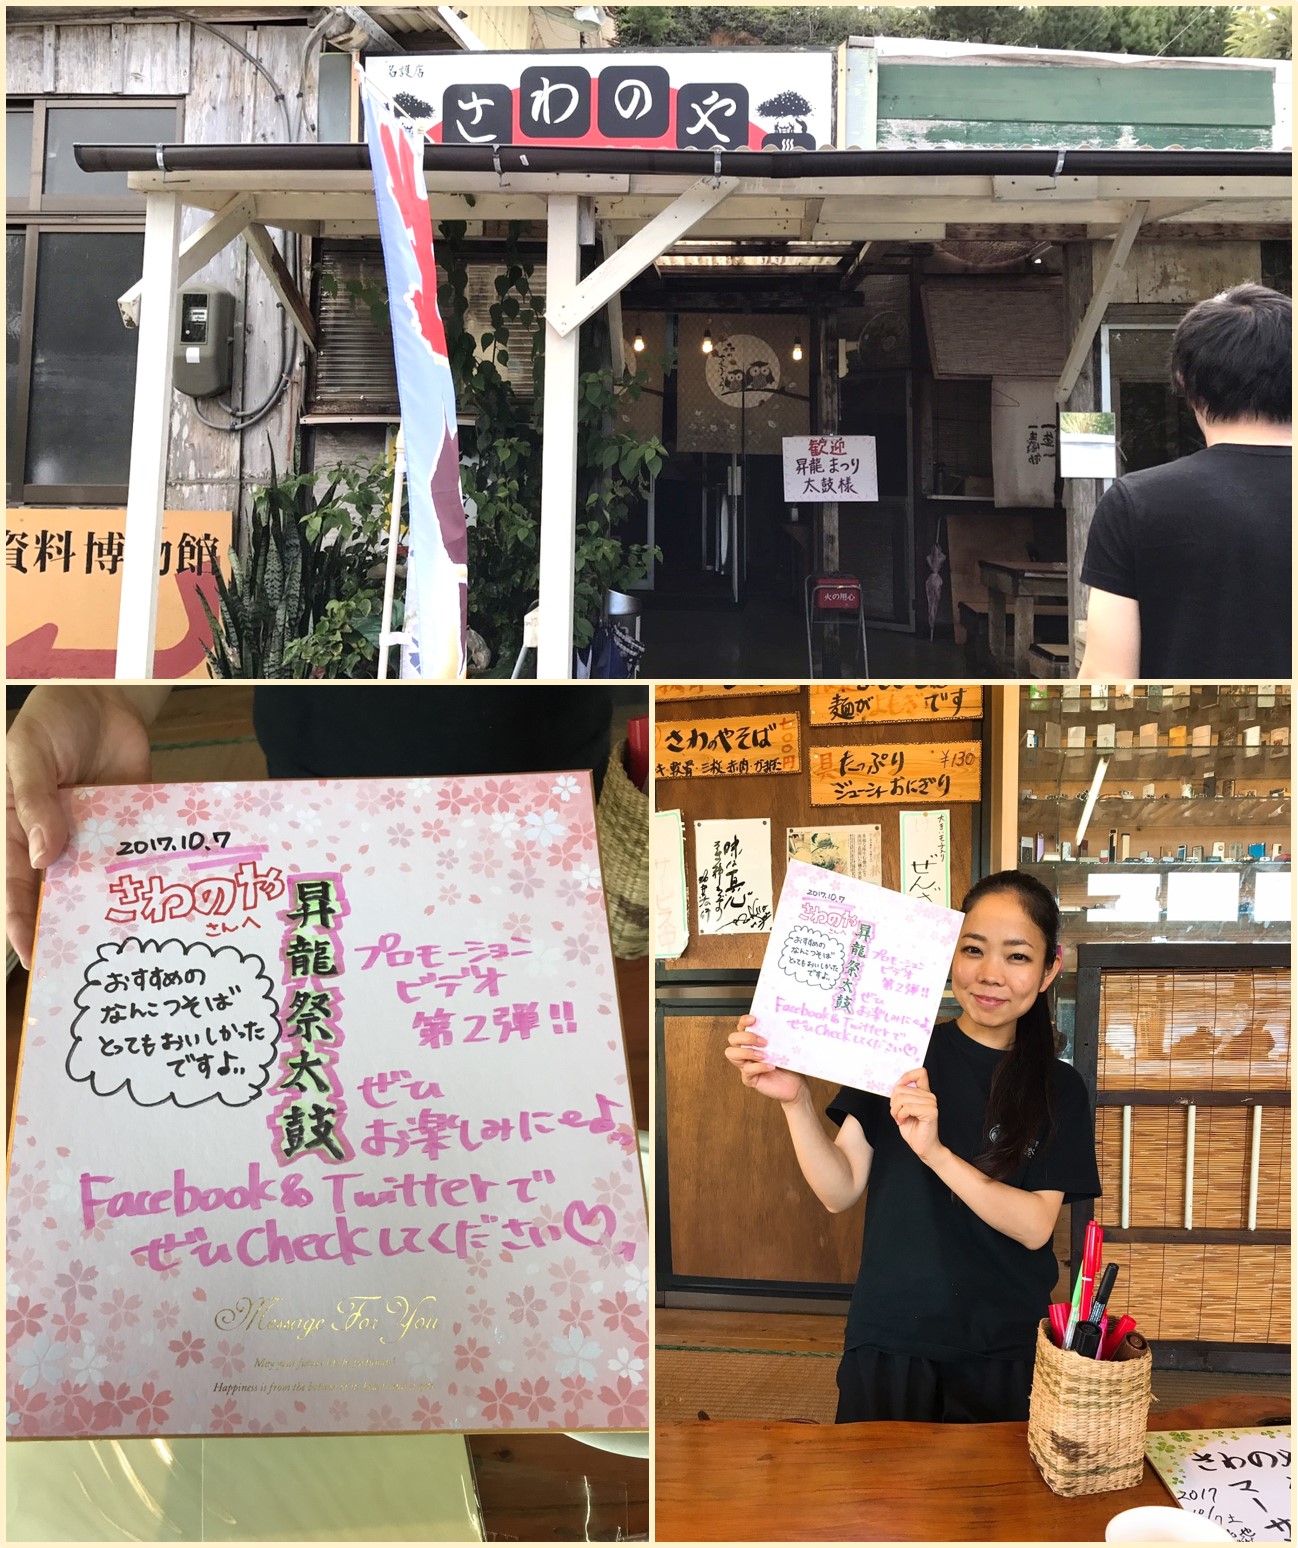 名護店
さわのや
歓迎
昇龍まつり
太鼓様
火の用心
資料博物館
2017.10.7
さわのや
さんへ
昇龍祭太鼓
おすすめの
なんこつそば
とってもおいしかった
ですよ..
プロモーション
ビデオ
第2弾!!
ぜひ
お楽しみに〜よ
Facebook & Twitterで
ぜひCheckしてください♡。
Message For You
麺が
です
さわのやそば
七〇〇円
具たっぷり
¥130
ジューシーおにぎり
サービス
ぜんざ
2017.10.7
さわのや
さんへ
昇龍祭太鼓
おすすめの
なんこつそば
とってもおいしかった
ですよ
プロモーション
ビデオ
第2弾!!
ぜひ
お楽しみに〜よ
Facebook & Twitterで
ぜひCheckしてください♡。
さわのや
2017
10/7 土